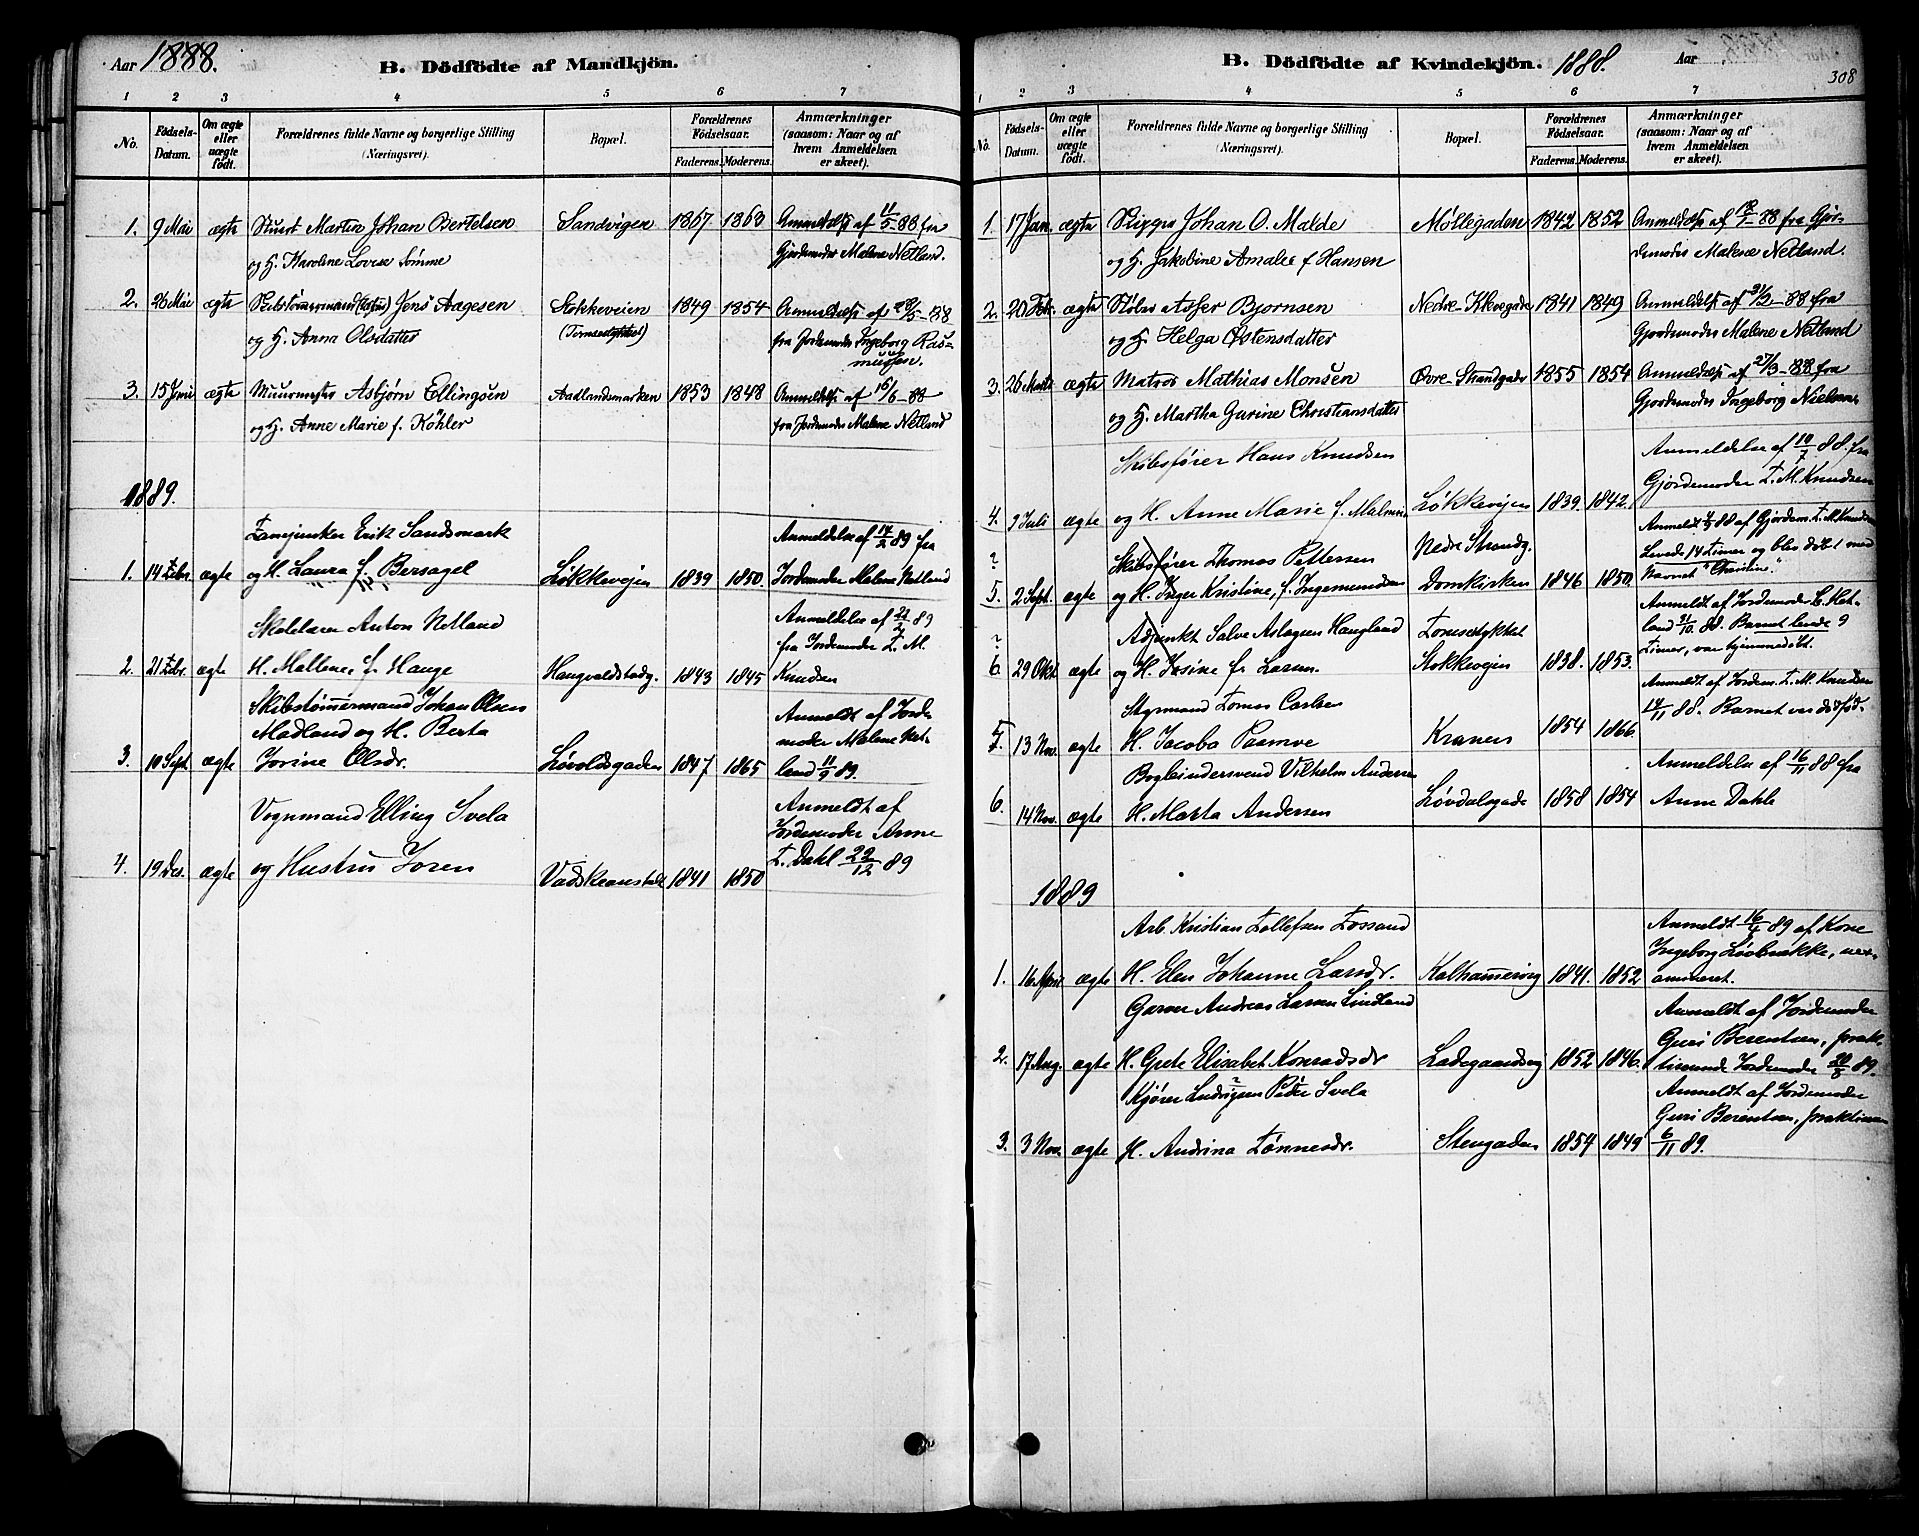 Aar 1888.
B. Dödfödte af Mandkjön.
1 2 3 4 5 6 7
No. Födsels-Datum. Om ægte eller uægte födt. Forældrenes fulde Navne og borgerlige Stilling (Næringsvei). Bopæl. Forældrenes Födselsaar. Faderens. Moderens. Anmærkninger (saasom: Naar og af hvem Anmeldelsen er skeet).
1. 9 Mai ægte Martin Johan Bertelsen Sandvigen 1867 1863 Anmeldelse af 11/5-88 fra
og H. Karoline Lovise Sømme Gjordemoder Malene Netland.
2. 26 Mai ægte Jens Aagesen Stokkeveien 1849 1854 Anmeldelse af 28/5-88
og H. Anna Olsdatter fra Jordemoder Ingeborg Ras-
mussen.
3. 15 Juni ægte Muurmester Asbjørn Ellingsen Aadlandsmarken 1853 1848 Anmeldelse af 16/6-88
og H. Anne Marie f. Köhler fra Jordemoder Malene Netland
1889.
Fanejunker Erik Sandsmark Anmeldelse af 14/2 89 fra
1. 14 Febr. ægte og H. Laura f. Bersagel Løkkevejen 1839 1850. Jordemoder Malene Netland
Anton Netland Anmeldelse af 22/2 89
fra Jordemoder T. M.
2. 21 Febr. ægte H. Mallene f. Hauge Haugvaldstadg. 1843 1845 Knudsen
Skibstømmermand Johan Olsen Anmeldt af Jorde
Madland og H. Berta moder Malene Net-
3. 10 Sept. ægte Jorine Olsdr. Løvoldsgaden 1847 1865 land 11/9 89.
Vognmand Elling Svela Anmeldt af
Jordemoder Anne
4. 19 Des. ægte og Hustru Joren Vadskeanstalt 1841 1850 T. Dahl 22/12 89
B. Dödfödte af Kvindekjön. 1888. Aar
308
1 2 3 4 5 6 7
No. Födsels-Datum. Om ægte eller uægte födt. Forældrenes fulde Navne og borgerlige Stilling (Næringsvei). Bopæl. Forældrenes Födselsaar. Faderens. Moderens. Anmærkninger (saasom: Naar og af hvem Anmeldelsen er skeet).
1 17 Jan. ægte Johan O. Malde Møllegaden 1842 1852 Anmeldelse af 18/1-88 fra Gjor-
og H. Jakobine Amalie f Hansen demoder Malene Netland.
2. 20 Febr. ægte Asser Bjornsen Nedre 1841 1849 Anmeldelse af 21/2-88 fra
og H. Helga Østensdatter Gjordemoder Malene Netland
3. 26 Marts ægte Matros Mathias Monsen Øvre Strandgade 1855 1854 Anmeldelse af 27/3-88 fra
og H. Martha Gurine Christiansdatter Gjordemoder Ingeborg Nielsen
Skibsfører Hans Knudsen Anmeldelse af 10/7 88. fra
Gjordemoder T. M. Knudsen
4. 9 Juli ægte og H. Anne Marie f. Løkkevejen 1839 1842.
? Skibsfører Thomas Pettersen Nedre Strandg. Anmeldt 4/9 88 af Gjordem. T. M. Knudsen
Levede 14 Timer og blev døbt med
5. 2 Sept. ægte og H. Inger Kristine, f. Ingemundsen Domkirken 1846 1850. Navnet "Christine."
? Adjunkt Salve Aslagsen Haugland Tomsestykket Anmeldt af Jordemoder C. Het-
land 31/10. 88. Barnet levede 9
6 29 Okt ægte og H. Josine f. Larsen. Stokkevejen 1838. 1853. Timer, var hjemmedøbt.
Styrmand Tomas Carlsen Anmeldt af Jordem. T. M. Knudsen
5. 13 Nov. ægte H. Jacoba Kranen 1854 1866. 14/11 88. Barnet var dødfød.
Bogbindersvend Vilhelm Andersen Anmeldelse af 16/11 88 fra
6. 14 Nov. ægte H. Marta Andersen Løvdalsgade 1858 1854 Anne Dahle
1889
Arb. Kristian Tollefsen Fossand Anmeldt 16/4 89 af Kone
Ingeborg Løbrække, uex-
1. 16 April ægte H. Elen Johanne Larsdr. Kalhammervig 1841. 1852 amineret.
Garver Andreas Larsen Lindland Anmeldt af Jordemoder
Guri Berentsen, prak-
2. 17 Aug. ægte H. Grete Elisabet Konradsdr Ladegaardsvej 1852 1846. tiserende Jordemoder 20/8 89.
Kjører Ludvigsen Peder Svela Anmeldt af Jordemoder
Guri Berentsen,
3. 3 Nov. ægte H. Andrina Tønnesdr. Stengaden 1854 1849 6/11 89.